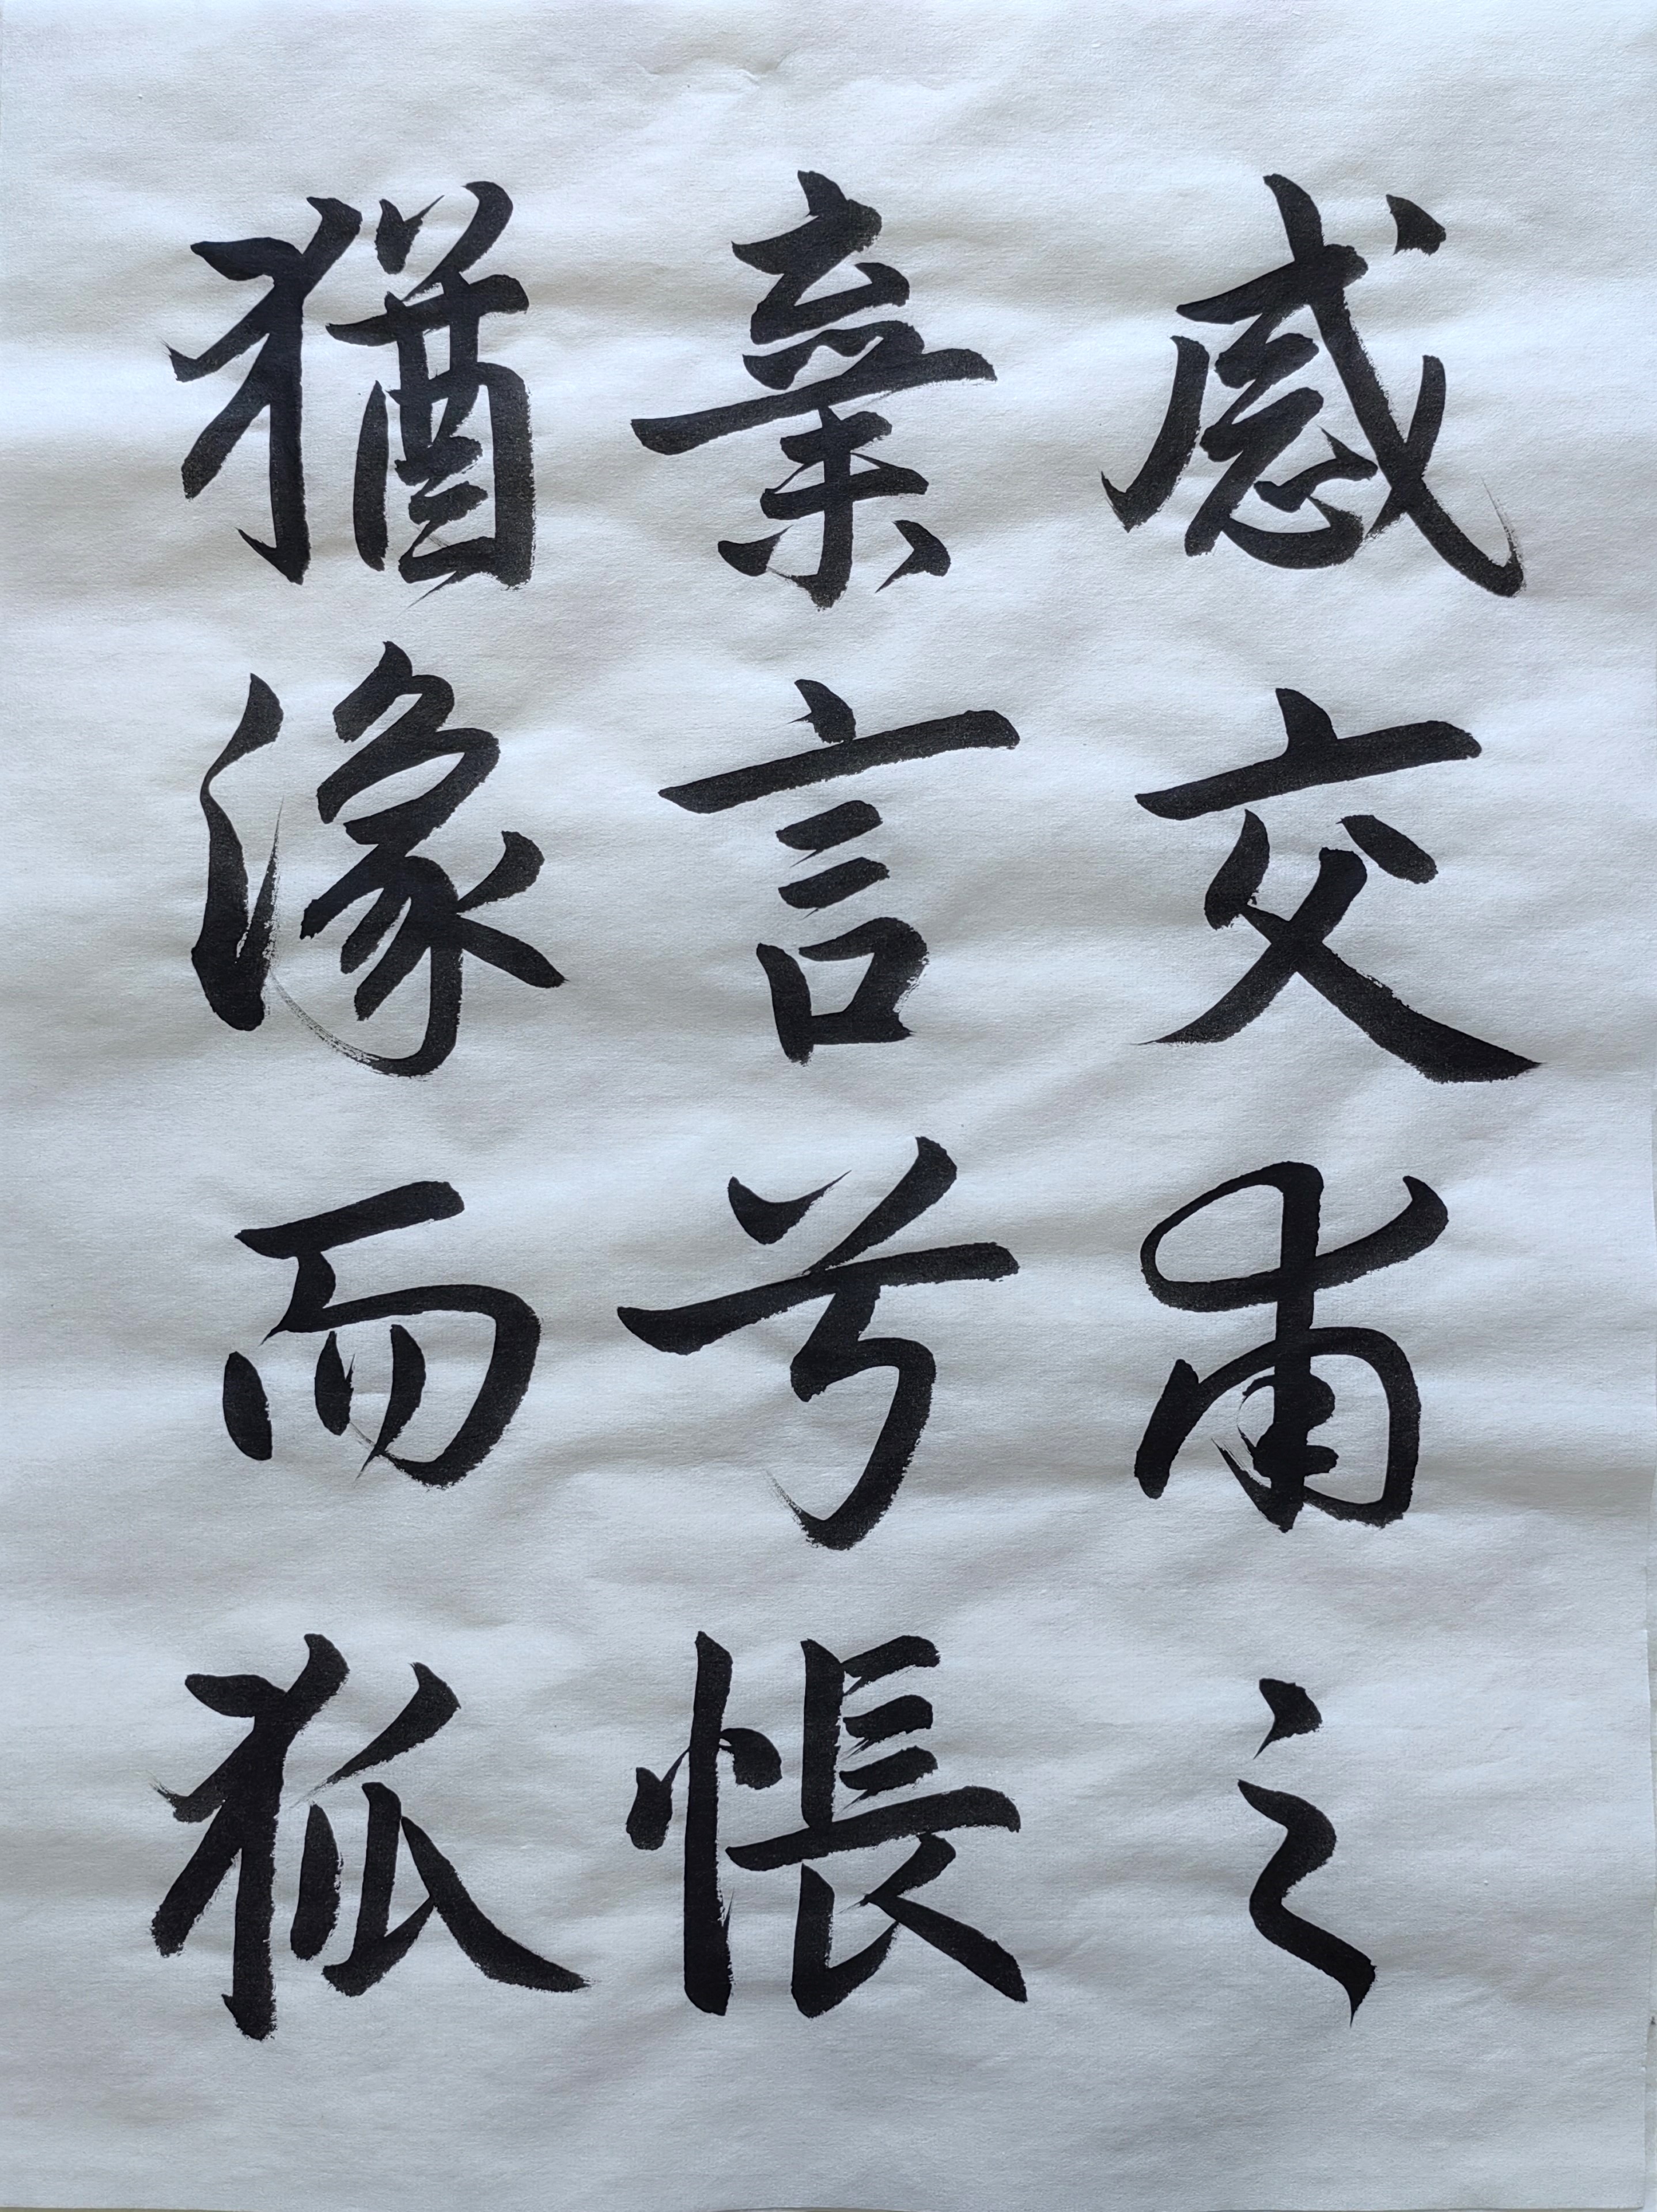 感交甫之
棄言兮悵
猶豫而狐